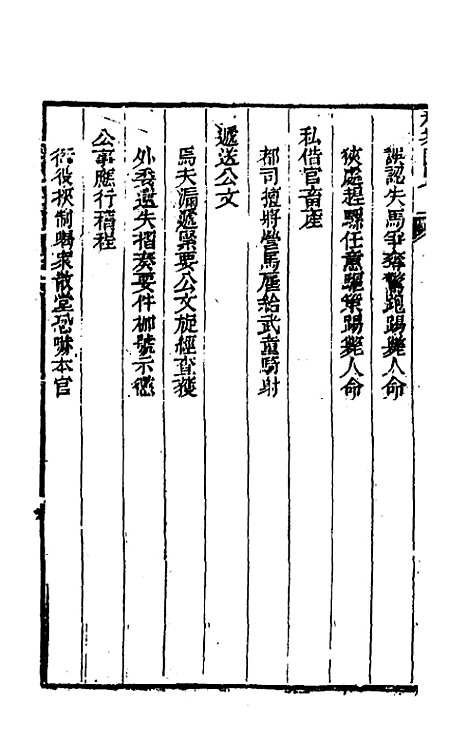 誤認失馬爭奔驚跑踢斃人命
狹處趕騾任意驅策踢斃人命
私借官畜產
都司擅將營馬雇給武童騎射
遞送公文
馬夫漏遞緊要公文旋經查獲
外委遺失摺奏要件枷號示懲
公事應行稽程
衙役挾制喝眾散堂恐嚇本官